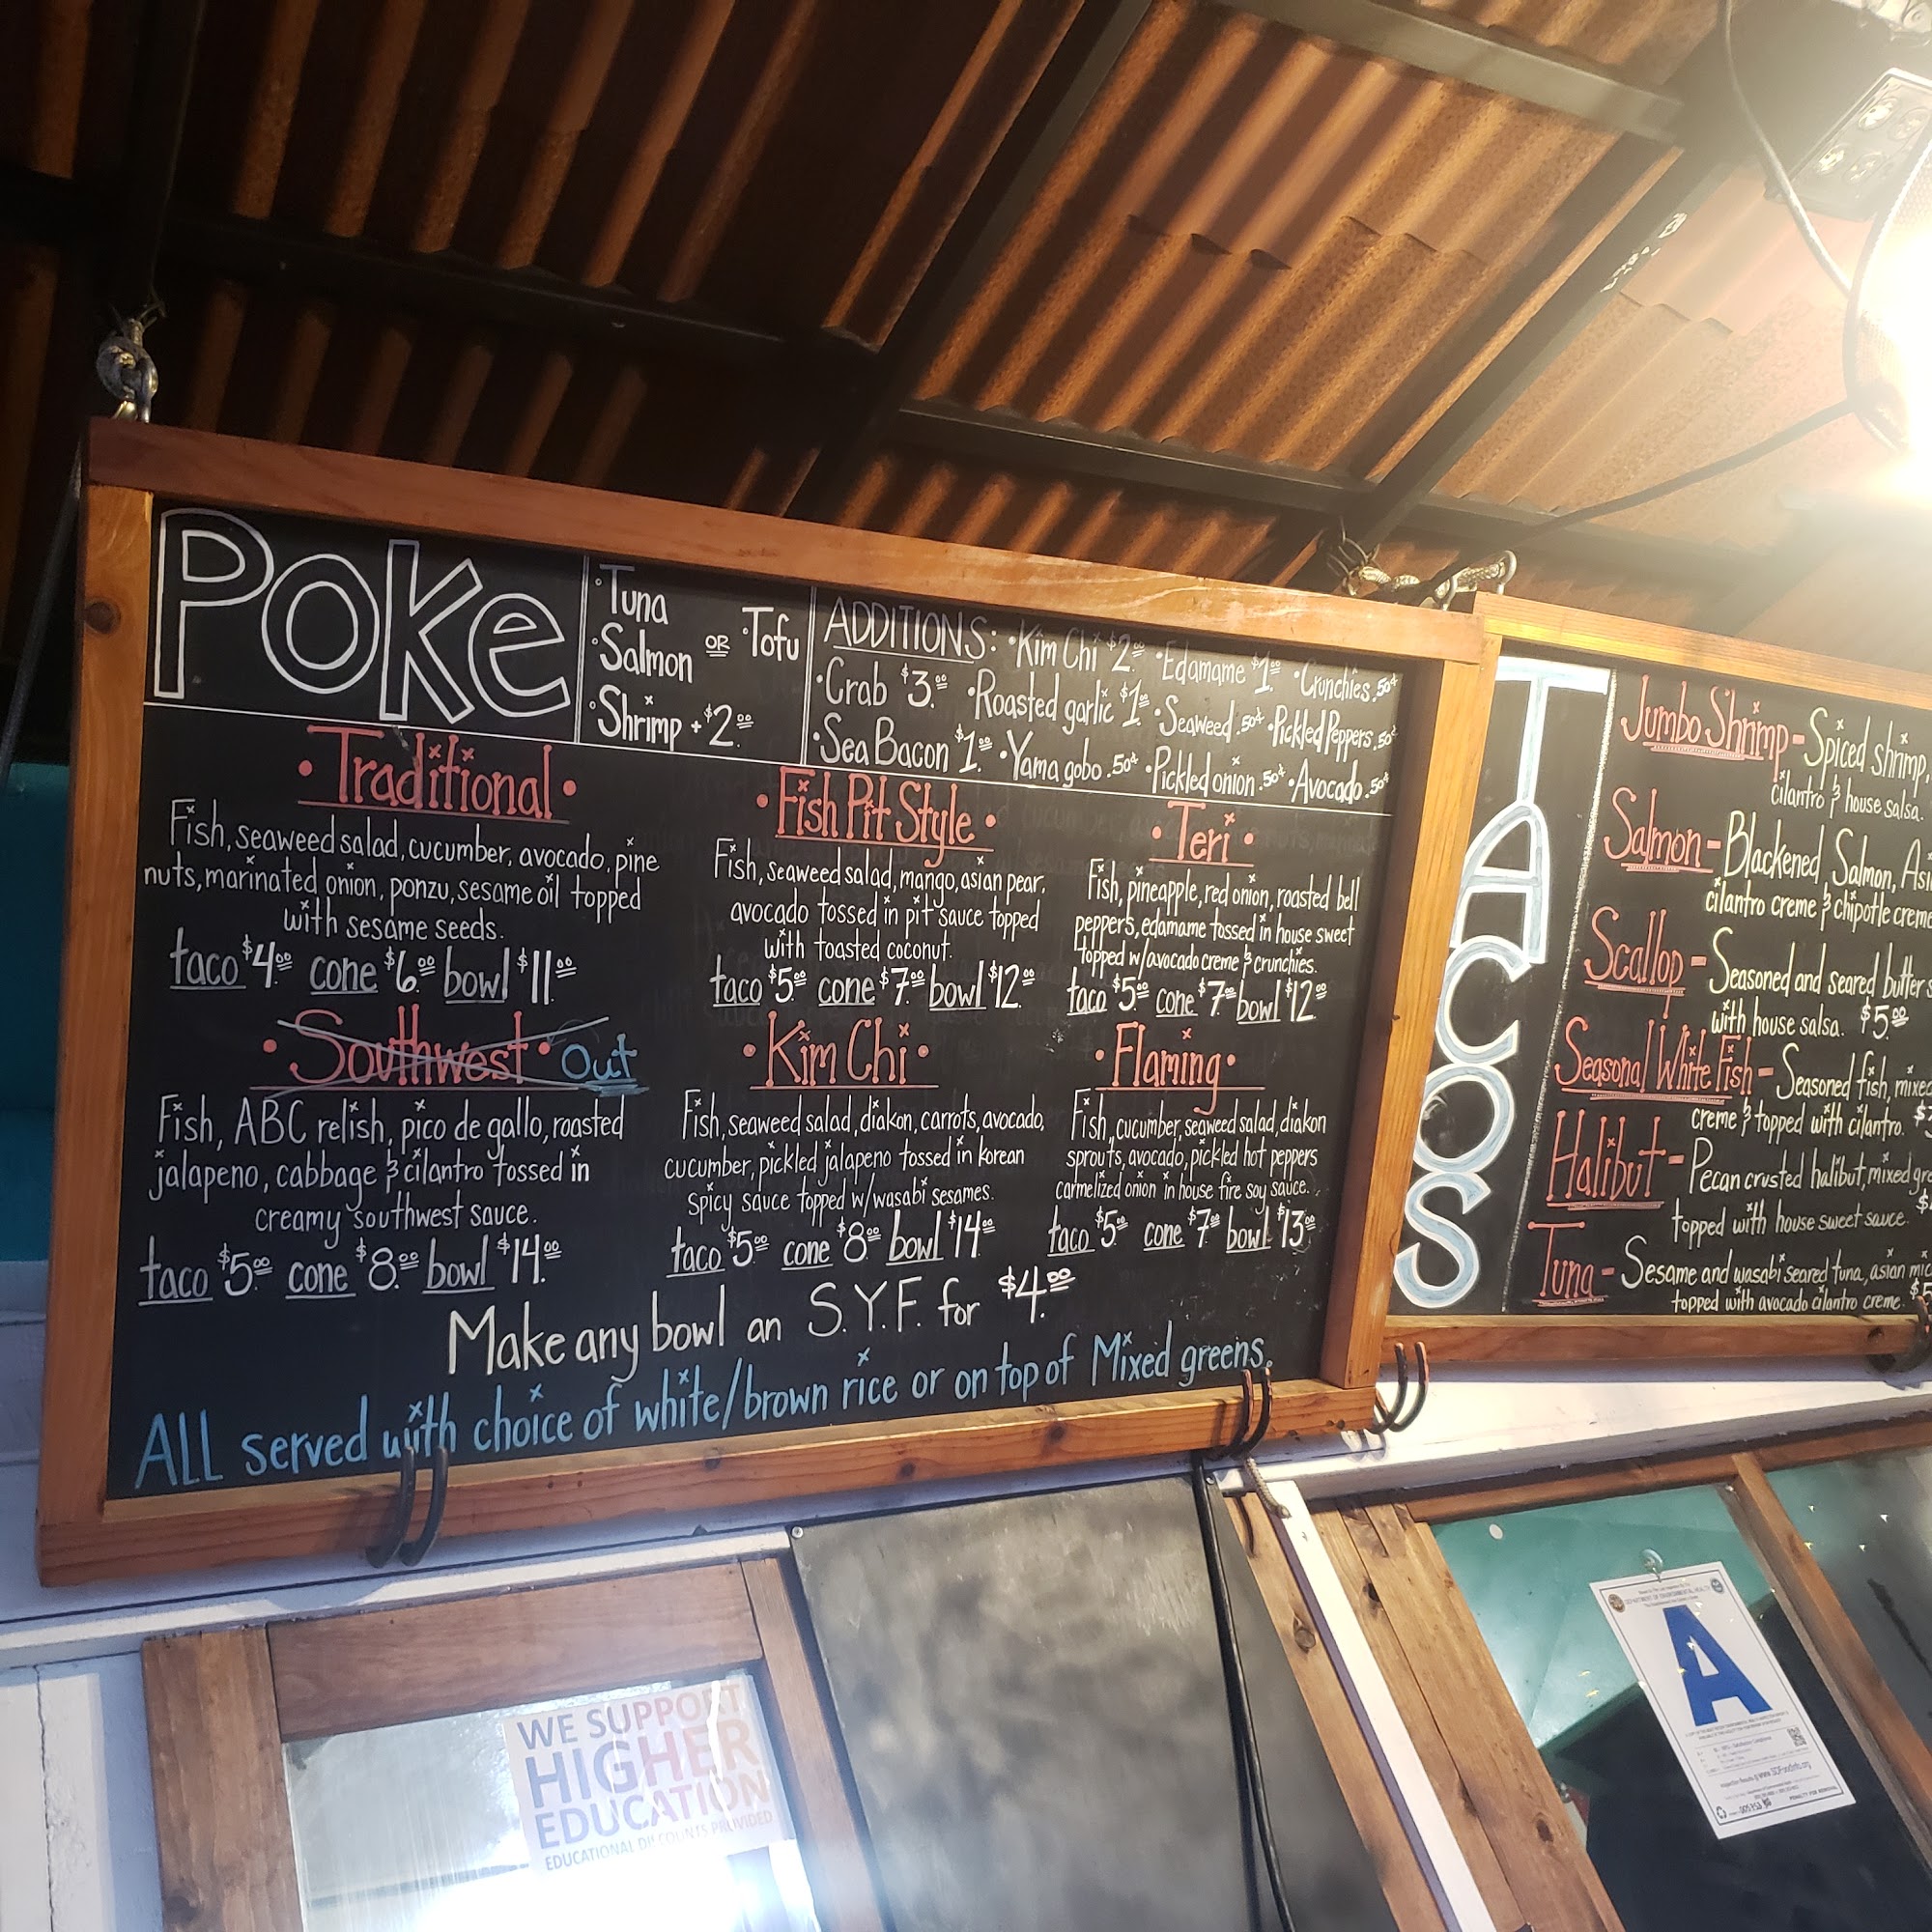 POKe
•Tuna
•Salmon OR •Tofu
•Shrimp +$2.00
ADDITIONS: •Kim Chi $2.00 •Edamame $1.00 •Crunchies .50¢
•Crab $3.00 •Roasted garlic $1.00 •Seaweed .50¢ •Pickled Peppers .50¢
•Sea Bacon $1.00 •Yama gobo .50¢ •Pickled onion .50¢ •Avocado .50¢
•Traditional•
Fish, seaweed salad, cucumber, avocado, pine
nuts, marinated onion, ponzu, sesame oil topped
with sesame seeds.
taco $4.00 cone $6.00 bowl $11.00
•Fish Pit Style•
Fish, seaweed salad, mango, asian pear,
avocado tossed in pit sauce topped
with toasted coconut.
taco $5.00 cone $7.00 bowl $12.00
•Teri•
Fish, pineapple, red onion, roasted bell
peppers, edamame tossed in house sweet
topped w/avocado creme & crunchies.
taco $5.00 cone $7.00 bowl $12.00
•Southwest• Out
Fish, ABC relish, pico de gallo, roasted
jalapeno, cabbage & cilantro tossed in
creamy southwest sauce.
taco $5.00 cone $8.00 bowl $14.00
•Kim Chi•
Fish, seaweed salad, diakon, carrots, avocado,
cucumber, pickled jalapeno tossed in korean
spicy sauce topped w/wasabi sesames.
taco $5.00 cone $8.00 bowl $14.00
•Flaming•
Fish, cucumber, seaweed salad, diakon
sprouts, avocado, pickled hot peppers
carmelized onion in house fire soy sauce.
taco $5.00 cone $7.00 bowl $13.00
Make any bowl an S.Y.F. for $4.00
ALL served with choice of white/brown rice or on top of Mixed greens.
TACOS
Jumbo Shrimp - Spiced shrimp,
cilantro & house salsa.
Salmon - Blackened Salmon,
cilantro creme & chipotle creme
Scallop - Seasoned and seared butter
with house salsa. $5.00
Seasonal White Fish - Seasoned fish, mixed
creme & topped with cilantro.
Halibut - Pecan crusted halibut, mixed
topped with house sweet sauce.
Tuna - Sesame and wasabi seared tuna, asian
topped with avocado cilantro creme.
WE SUPPORT
HIGHER
EDUCATION
EDUCATIONAL DISCOUNTS PROVIDED
DEPARTMENT OF ENVIRONMENTAL HEALTH
A